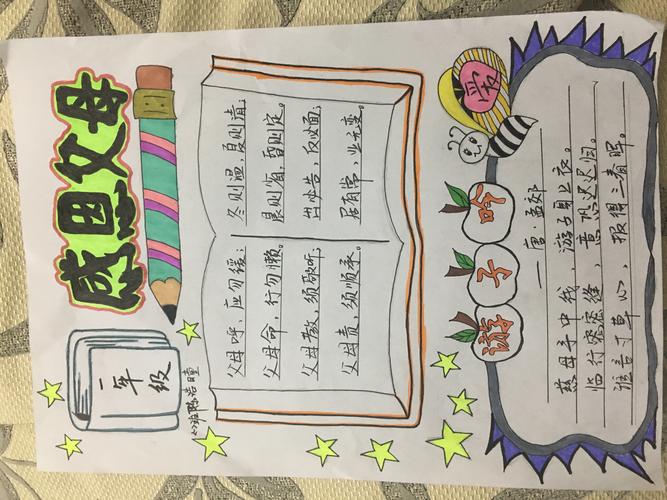 感恩父母
年级
父母呼，应勿缓；
父母命，行勿懒。
父母教，须敬听；
父母责，须顺承。
冬则温，夏则清。
晨则省，昏则定。
出必告，反必面；
居有常，业无变。
爱
游子吟
—唐·孟郊
慈母手中线，游子身上衣。
临行密密缝，意恐迟迟归。
谁言寸草心，报得三春晖。